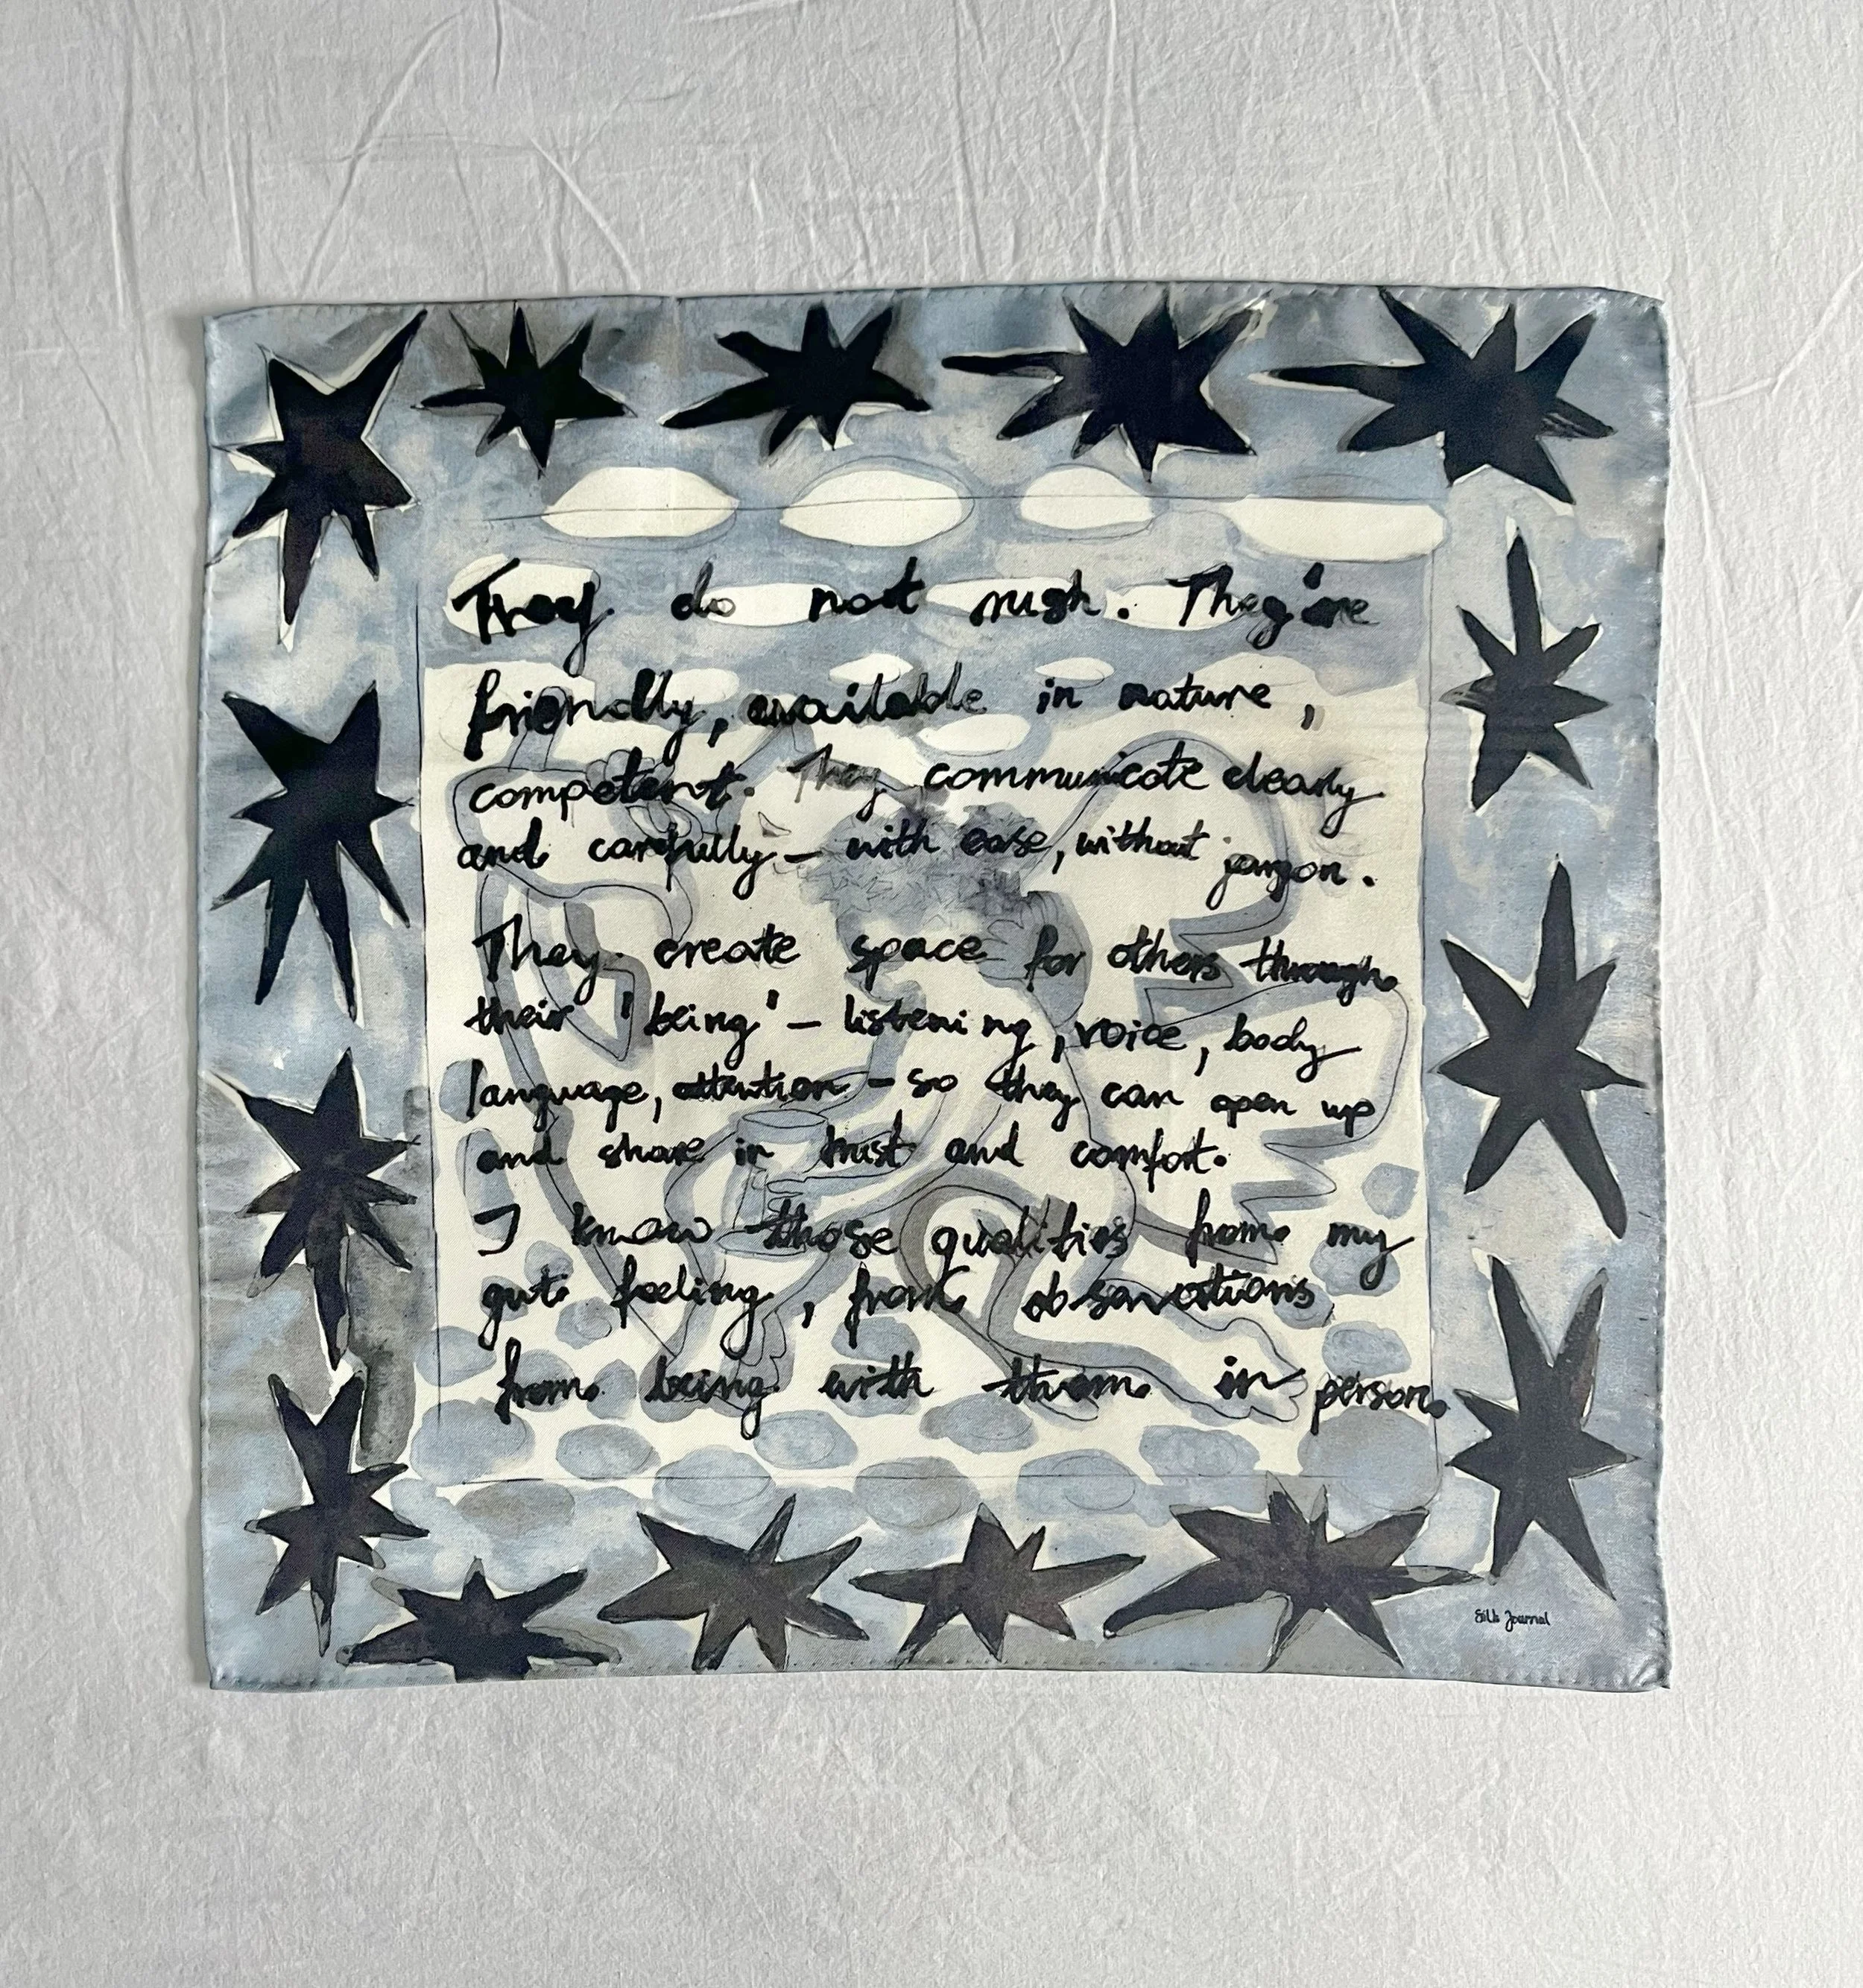 They do not rush. They're
friendly, available in nature,
competent. They communicate clearly
and carefully – with ease, without jargon.
They create space for others through
their 'being' – listening, voice, body
language, attention – so they can open up
and share in trust and comfort.
I know those qualities from my
gut feeling, from observations
from being with them in person.
Journal